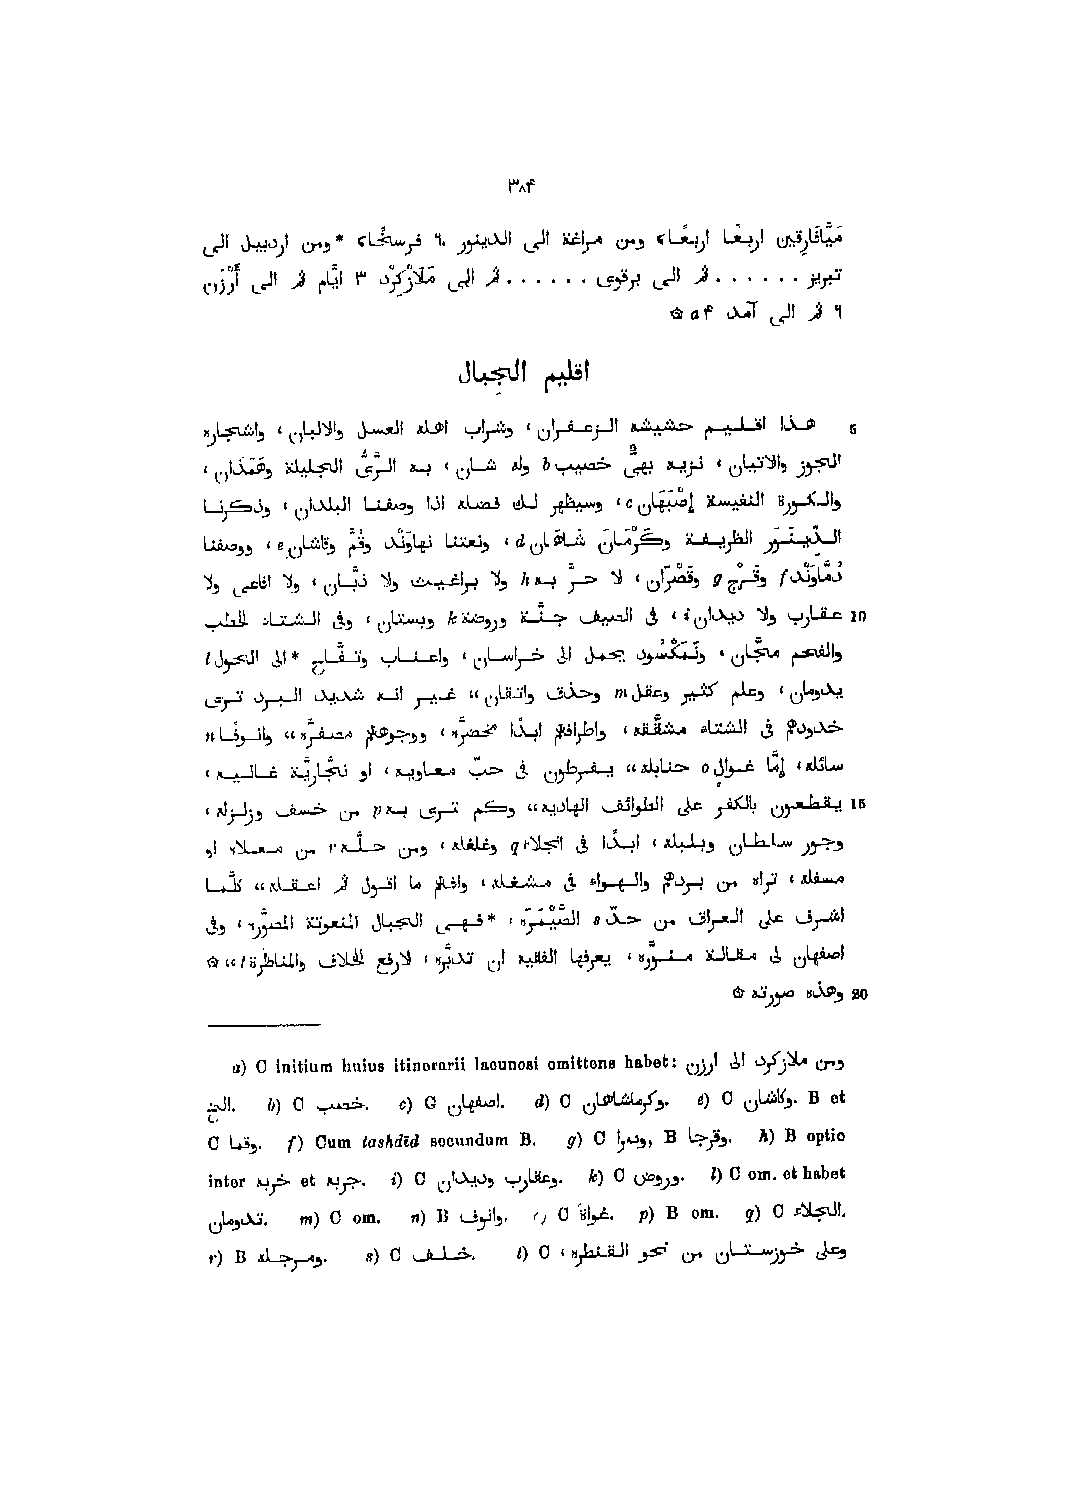 ٣٨۴
مَيَّافَارِقين اربعًا اربعًا ومن مراغة الى الدينور ٦٠ فرسخًا *ومن اردبيل الى
تبريز . . . . . . . ثمّ الى برقوى . . . . . . ثمّ الى مَلَازْكِرْد ٣ ايّام ثمّ الى أَرْزَن
٦ ثمّ الى آمد ۴ a ۞
اقليم الجبال
5 هذا اقليم حشيشه الزعفران، وشراب اهله العسل والالبان، واشجاره
الجوز والاتيان، نزيه بهىٌّ خصيب b وله شان، به الرَّىُّ الجليلة وهَمَذان،
والكورة النفيسة إِصْبَهَان c، وسيظهر لك فضله اذا وصفنا البلدان، وذكرنا
الدِّينَوَر الظريفة وكَرْمَانَ شَاهَان d، ونعتنا نهاوَنْد وقُمَّ وقاشان e، ووصفنا
دُمَّاوَنْد f وقَرْج g وقَصْرَان، لا حرَّ به h ولا براغيث ولا ذبَّان، ولا افاعى ولا
10 عقارب ولا ديدان i، فى الصيف جنَّة وروضة k وبستان، وفى الشتاء لحطب
والفحم مجَّان، ونَمَكْسُود يحمل الى خراسان، واعناب وتفَّاح *الى الحول l
يدومان، وعلم كثير وعقل m وحذق واتقان،، غير انه شديد البرد ترى
خدودهم فى الشتاء مشقَّقه، واطرافهم ابدًا مخضرَّه، ووجوههم مصفرَّه،، وانوفًا n
سائله، إِمَّا غوال o حنابله،، يفرطون فى حبّ معاويه، او نجَّاريَّة غاليه،
15 يقطعون بالكفر على الطوائف الهاديه،، وكم ترى به p من خسف وزلزله،
وجور سلطان وبلبله، ابدًا فى انجلا q وغلغله، ومن حلَّه r من معلاه او
مسفله، تراه من بردهم والهواء فى مشغله، وافهم ما اقول ثم اعقله،، كلّما
اشرف على العراق من حدّه s الصَّيْمَرَه، *فهى الجبال المنعوتة المصوَّره، وفى
اصفهان لى مقالة منوَّره، يعرفها الفقيه ان تدبَّره، لارفع لخلاف والمناظرة t،، ۞
20 وهذه صورته ۞
a) C initium huius itinerarii lacunosi omittens habet: ومن ملازكرد الى ارزن
الخ. b) C خصب. c) C اصفهان. d) C وكرماشاهان. e) C وكاشان. B et
C وقما. f) Cum tashdīd secundum B. g) C وبهرا, B وقرجا. h) B optio
inter خربه et جربه. i) C وعقارب وديدان. k) C وروض. l) C om. et habet
تدومان. m) C om. n) B وانوف. o) C غواة. p) B om. q) C الجلاء.
r) B ومرجله. s) C خلف. t) C وعلى خوزستان من نحو القنطره،